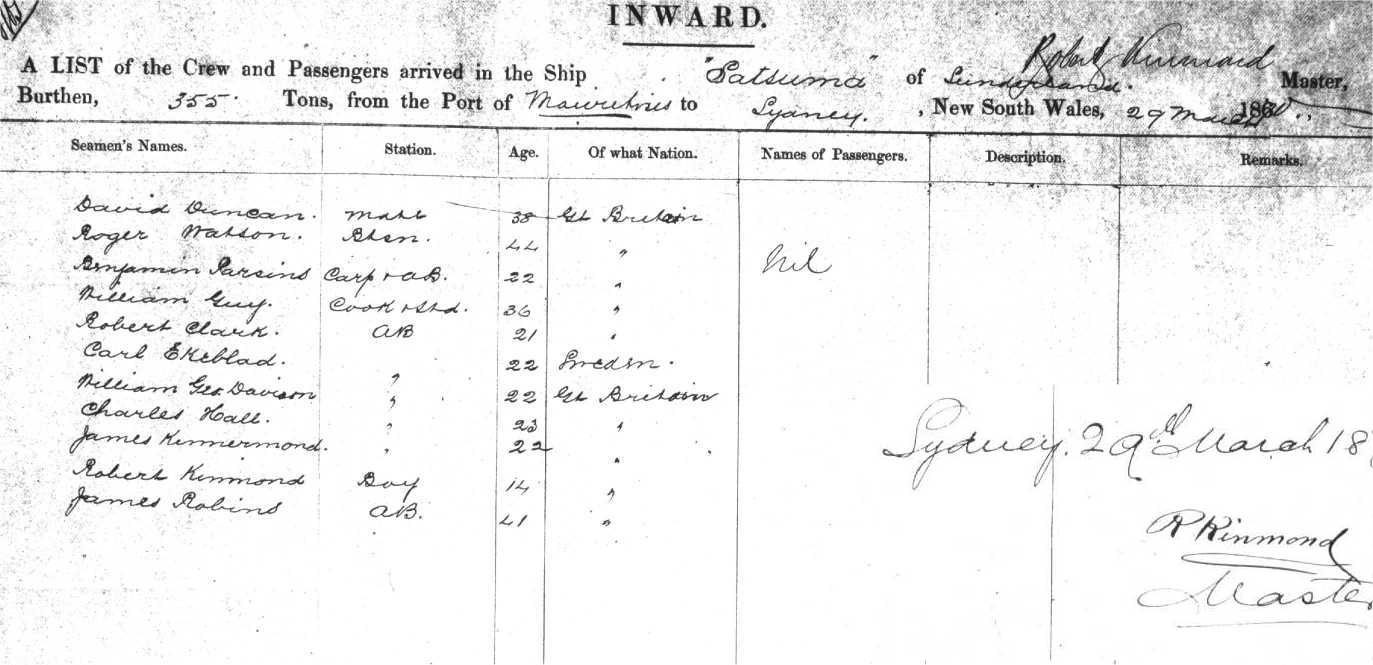 INWARD.
A LIST of the Crew and Passengers arrived in the Ship "Satsuma" of Sunderland. Robert Master,
Burthen, 355 Tons, from the Port of Mauritius to Sydney. , New South Wales, 29 March
Seamen's Names. Station. Age. Of what Nation. Names of Passengers. Description. Remarks.
David Duncan. Mate 38 Gt Britain
Roger Watson. Btsn. 44 "
Nil
Benjamin Parsins Carp & AB. 22 "
William Guy. Cook & Std. 36 "
Robert Clark. AB 21 "
Carl Ekeblad. " 22 Sweden.
William Geo. Davison " 22 Gt Britain
Charles Hall. " 23 "
James Kinnermond. " 22 "
Robert Kinmond Boy 14 "
James Robins AB. 41 "
Sydney. 29th March 18
R Kinmond
Master